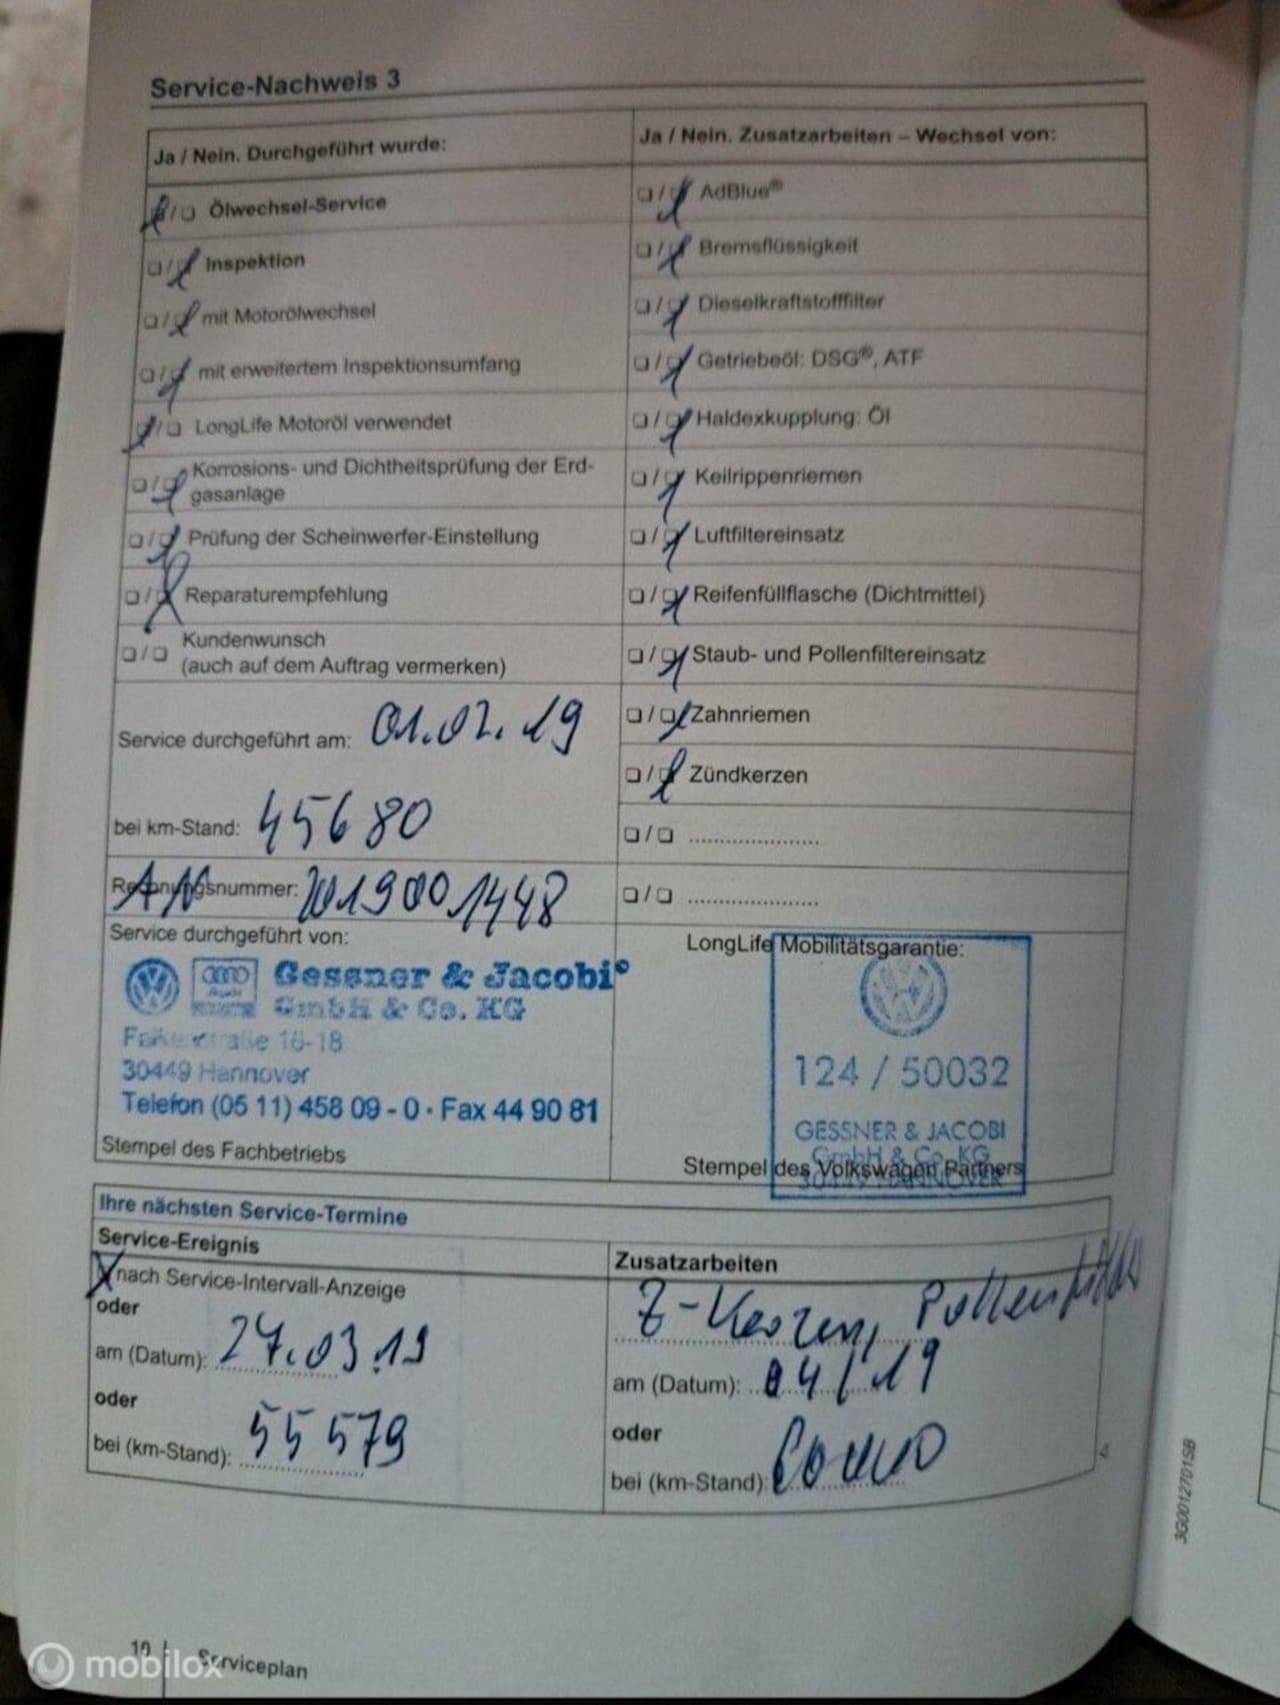 Service-Nachweis 3
Ja / Nein. Durchgeführt wurde:
Ölwechsel-Service
Inspektion
mit Motorölwechsel
mit erweitertem Inspektionsumfang
LongLife Motoröl verwendet
Korrosions- und Dichtheitsprüfung der Erd-
gasanlage
Prüfung der Scheinwerfer-Einstellung
Reparaturempfehlung
Kundenwunsch
(auch auf dem Auftrag vermerken)
Service durchgeführt am: 01.02.19
bei km-Stand: 45680
Rechnungsnummer: AN 2019001448
Service durchgeführt von:
Gessner & Jacobi
GmbH & Co. KG
16-18
30449 Hannover
Telefon (05 11) 458 09 - 0 · Fax 44 90 81
Stempel des Fachbetriebs
Ja / Nein. Zusatzarbeiten – Wechsel von:
AdBlue®
Bremsflüssigkeit
Dieselkraftstofffilter
Getriebeöl: DSG®, ATF
Haldexkupplung: Öl
Keilrippenriemen
Luftfiltereinsatz
Reifenfüllflasche (Dichtmittel)
Staub- und Pollenfiltereinsatz
Zahnriemen
Zündkerzen
LongLife Mobilitätsgarantie:
124 / 50032
GESSNER & JACOBI
GmbH & Co. KG
30449 HANNOVER
Stempel des Volkswagen Partners
Ihre nächsten Service-Termine
Service-Ereignis
nach Service-Intervall-Anzeige
oder
am (Datum): 27.03.19
oder
bei (km-Stand): 55579
Zusatzarbeiten
Z-Kerzen, Pollenfilter
am (Datum): 04/19
oder
bei (km-Stand): 60000
3G0012701SB
10 Serviceplan
mobilox